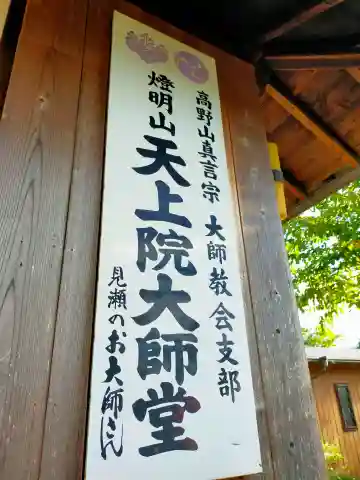 高野山真言宗 大師教会支部
燈明山 天上院大師堂
見瀬のお大師さん